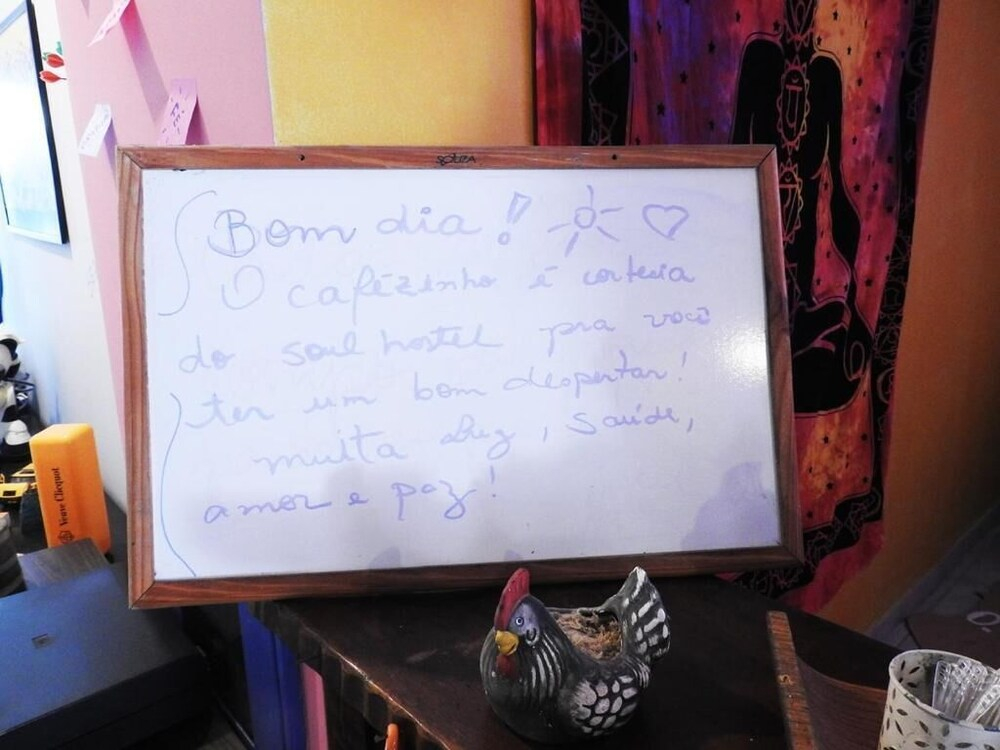 Bom dia!
O cafézinho é cortesia
do soul hostel pra você
ter um bom despertar!
muita luz, saúde,
amor e paz!
Veuve Clicquot